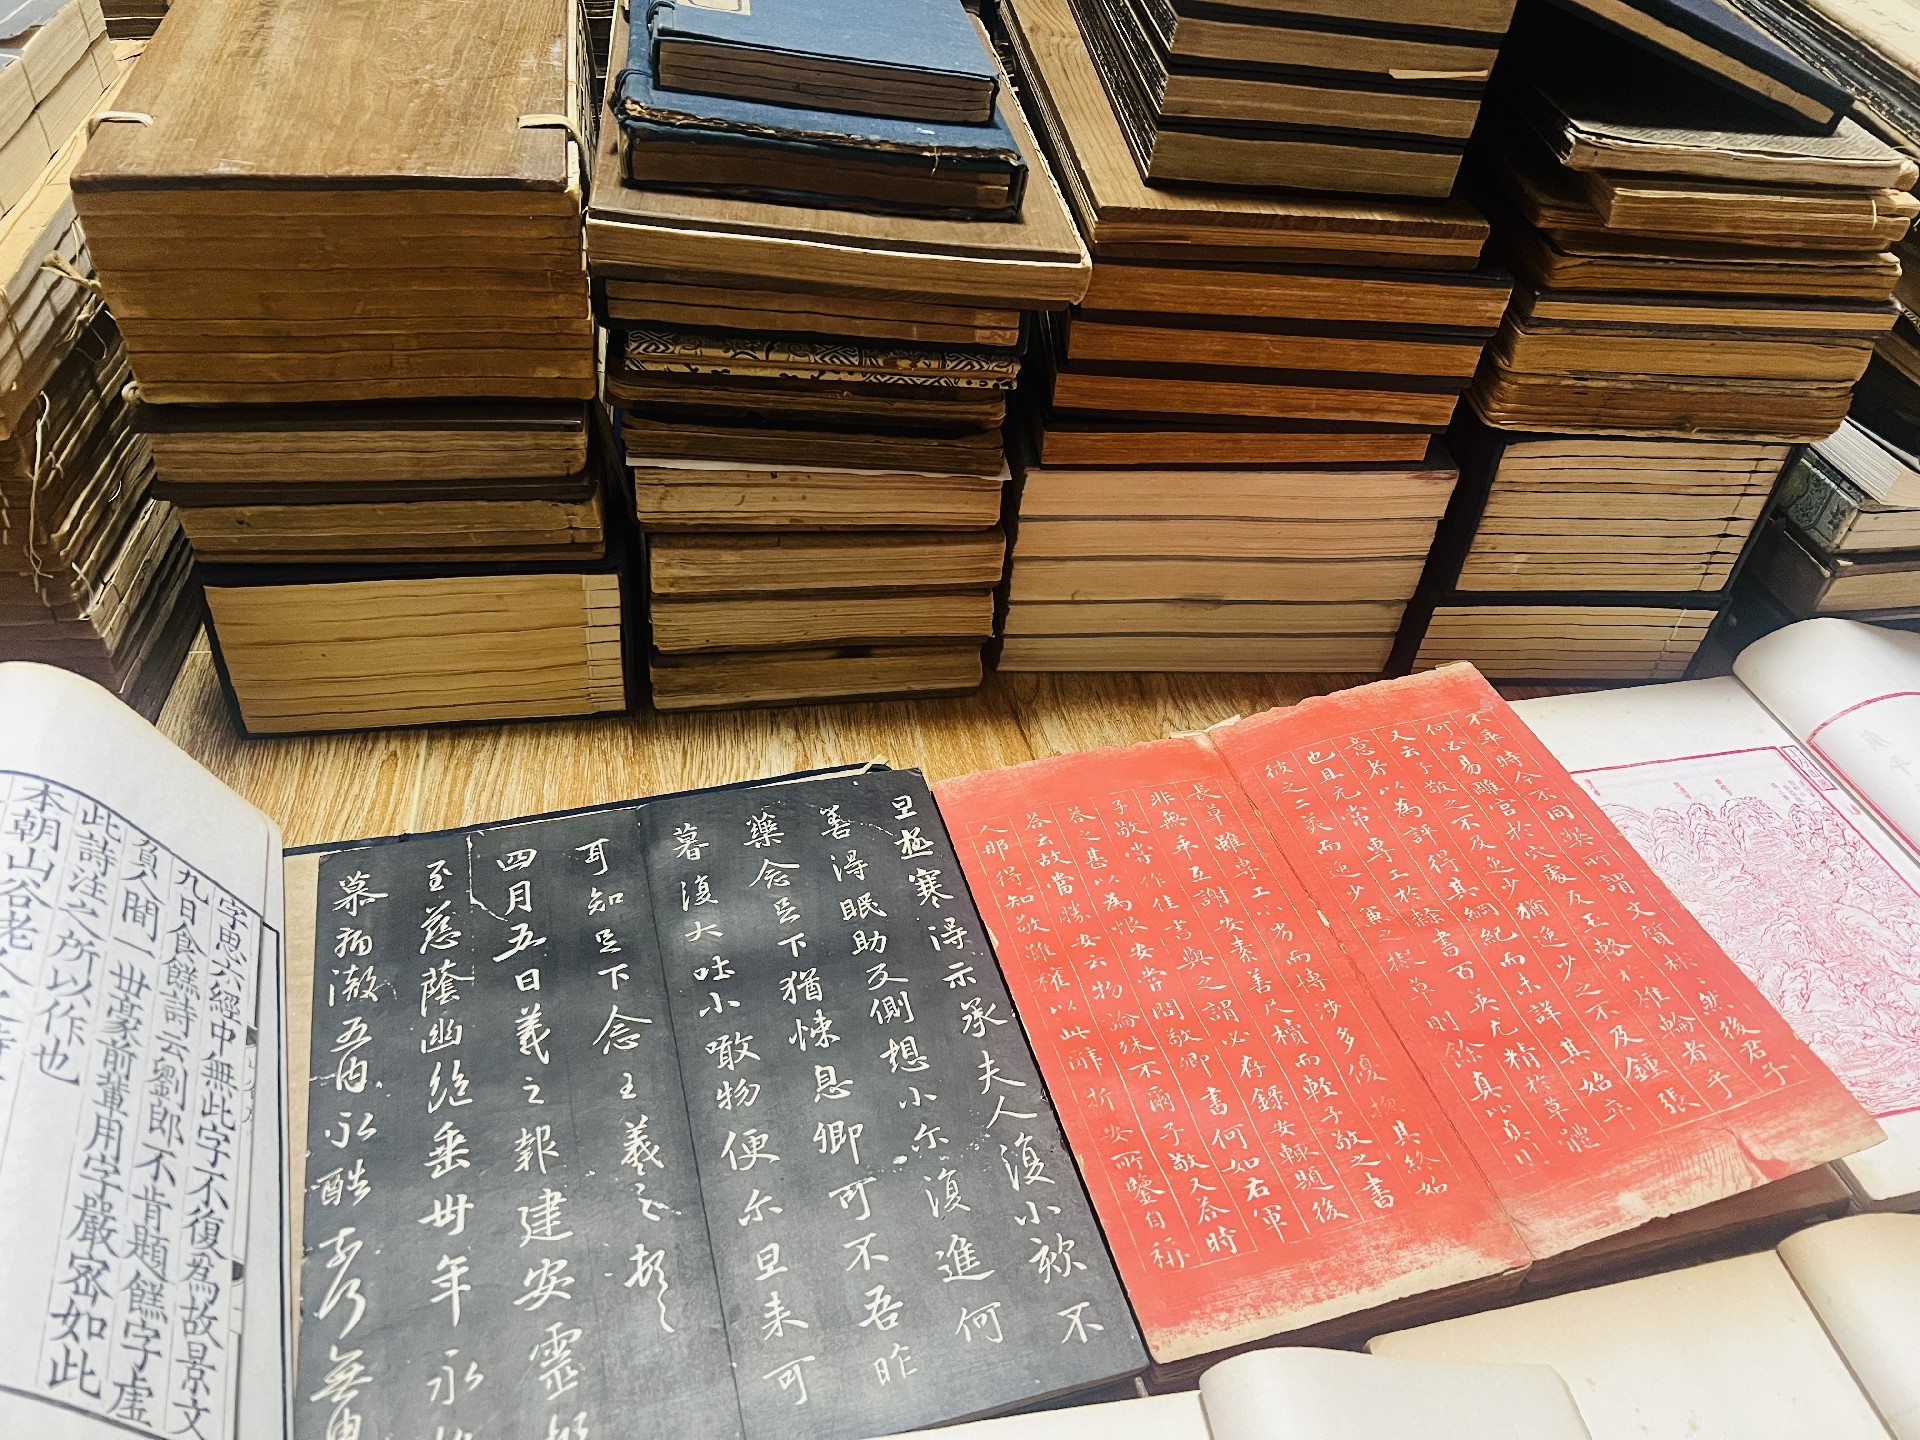 不乖時今不同獘所謂文質彬彬然後君子
何必易雕宮於穴處反玉輅於椎輪者乎
又云子敬之不及逸少猶逸少之不及鍾張
意者以為評得其綱紀而未詳其始卒
也且元常專工於隸書百英尤精於草體
彼之二美而逸少兼之擬草則餘真比真則
長草雖專工小劣而博涉多優摠其終始
匪無乖互謝安素善尺牘而輕子敬之書
子敬嘗作佳書與之謂必存錄安輒題後
荅之甚以為恨安嘗問敬卿書何如右軍
荅云故當勝安云物論殊不爾子敬又荅時
人那得知敬雖權以此辭折安所鑒自稱
旦極寒得示承夫人復小欬不
善得眠助反側想小尔復進何
藥念足下猶悚息卿可不吾昨
暮復大吐小噉物便尔旦来可
耳知足下念王羲之頓首
四月五日羲之報建安靈柩
至慈蔭幽絕垂卅年永惟
慕痛徹五內永酷奈何無由
字思六經中無此字不復為故景文
九日食餻詩云劉郎不肯題餻字虛
負人間一丗豪前輩用字嚴密如此
此詩注之所以作也
本朝山谷老人之詩